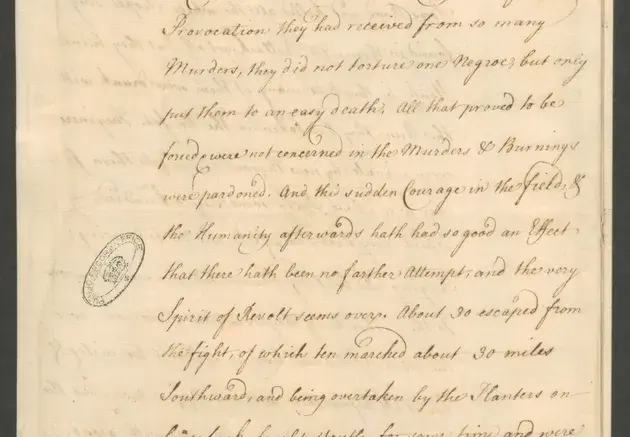 Provocation they had received from so many
Murders, they did not torture one Negroe, but only
put them to an easy death. All that proved to be
forced & were not concerned in the Murders & Burnings
were pardoned. And this sudden Courage in the field, &
the Humanity afterwards hath had so good an Effect
that there hath been no farther Attempt, and the very
Spirit of Revolt seems over. About 30 escaped from
the fight, of which ten marched about 30 miles
Southward, and being overtaken by the Planters on
for some time and were